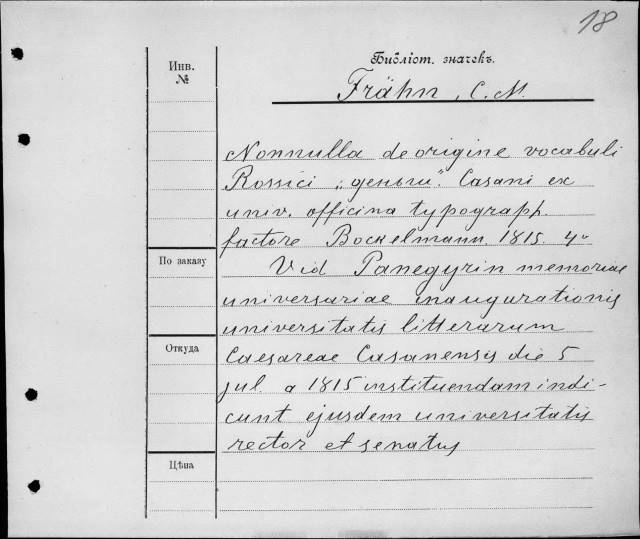 18
Инв.
№
Библіот. значекъ.
Frähn, C. M.
Nonnulla de origine vocabuli
Rossici „деньги". Casani ex
univ. officina typograph.
factore Bockelmann. 1815. 4°
По заказу
Vid Panegyrin memoriae
universariae inaugurationis
universitatis litterarum
Откуда
Caesareae Casanensis die 5
jul a 1815 instituendam indi-
cunt ejusdem universitatis
rector et senatus
Цѣна